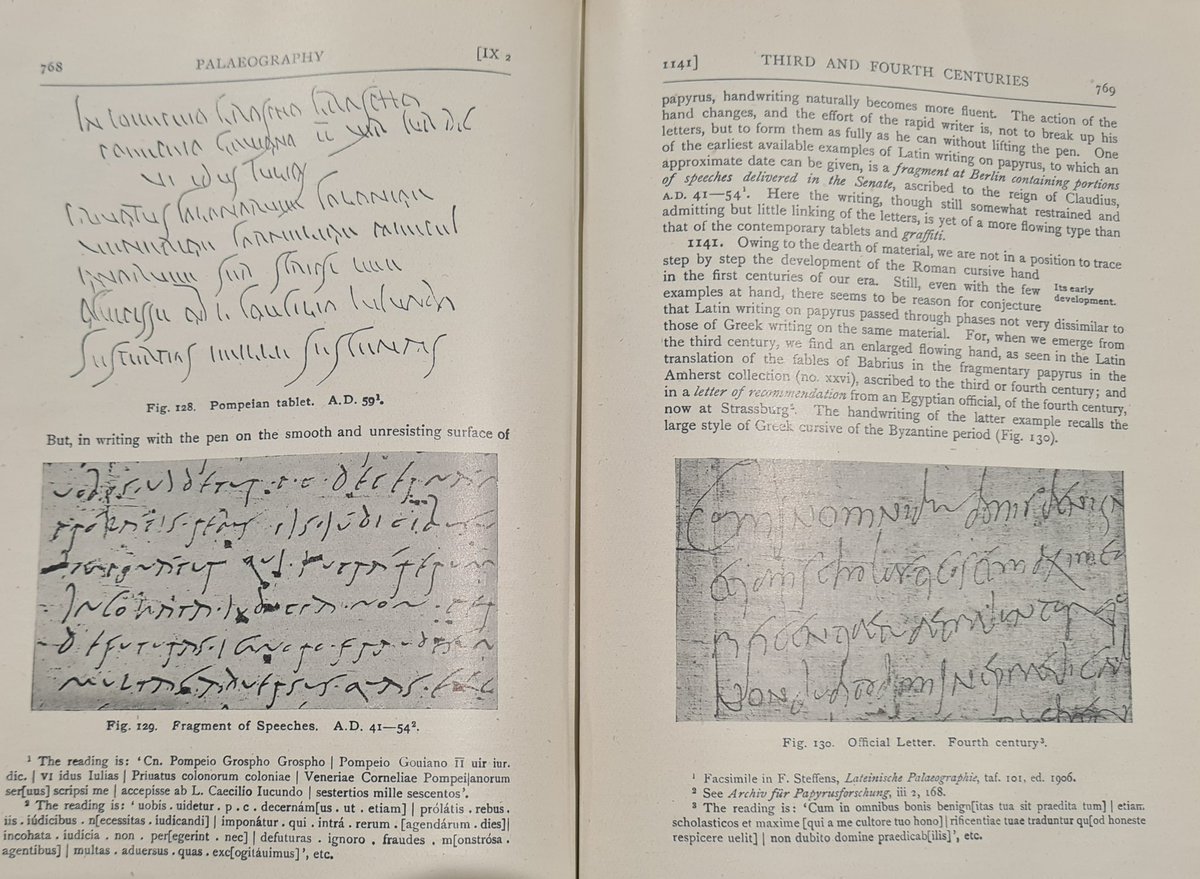 768 PALAEOGRAPHY [IX 2
Fig. 128. Pompeian tablet. A.D. 59¹.
But, in writing with the pen on the smooth and unresisting surface of
Fig. 129. Fragment of Speeches. A.D. 41—54².
¹ The reading is: ‘Cn. Pompeio Grospho Grospho | Pompeio Gouiano II̅ uir iur.
dic. | VI idus Iulias | Priuatus colonorum coloniae | Veneriae Corneliae Pompei|anorum
ser[uus] scripsi me | accepisse ab L. Caecilio Iucundo | sestertios mille sescentos’.
² The reading is: ‘uobis . uidetur . p . c . decernám[us . ut . etiam] | prólátis . rebus .
iis . iúdicibus . n[ecessitas . iudicandi] | impónátur . qui . intrá . rerum . [agendárum . dies]|
incohata . iudicia . non . per[egerint . nec] | defuturas . ignoro . fraudes . m[onstrósa .
agentibus] | multas . aduersus . quas . exc[ogitáuimus]’, etc.
1141] THIRD AND FOURTH CENTURIES 769
papyrus, handwriting naturally becomes more fluent. The action of the
hand changes, and the effort of the rapid writer is, not to break up his
letters, but to form them as fully as he can without lifting the pen. One
of the earliest available examples of Latin writing on papyrus, to which an
approximate date can be given, is a fragment at Berlin containing portions
of speeches delivered in the Senate, ascribed to the reign of Claudius,
A.D. 41—54¹. Here the writing, though still somewhat restrained and
admitting but little linking of the letters, is yet of a more flowing type than
that of the contemporary tablets and graffiti.
1141. Owing to the dearth of material, we are not in a position to trace
step by step the development of the Roman cursive hand
in the first centuries of our era. Still, even with the few
examples at hand, there seems to be reason for conjecture
Its early
development.
that Latin writing on papyrus passed through phases not very dissimilar to
those of Greek writing on the same material. For, when we emerge from
the third century, we find an enlarged flowing hand, as seen in the Latin
translation of the fables of Babrius in the fragmentary papyrus in the
Amherst collection (no. xxvi), ascribed to the third or fourth century; and
in a letter of recommendation from an Egyptian official, of the fourth century,
now at Strassburg². The handwriting of the latter example recalls the
large style of Greek cursive of the Byzantine period (Fig. 130).
Fig. 130. Official Letter. Fourth century³.
¹ Facsimile in F. Steffens, Lateinische Palaeographie, taf. 101, ed. 1906.
² See Archiv für Papyrusforschung, iii 2, 168.
³ The reading is: ‘Cum in omnibus bonis benign[itas tua sit praedita tum] | etiam
scholasticos et maxime [qui a me cultore tuo hono]|rificentiae tuae traduntur qu[od honeste
respicere uelit] | non dubito domine praedicab[ilis]’, etc.